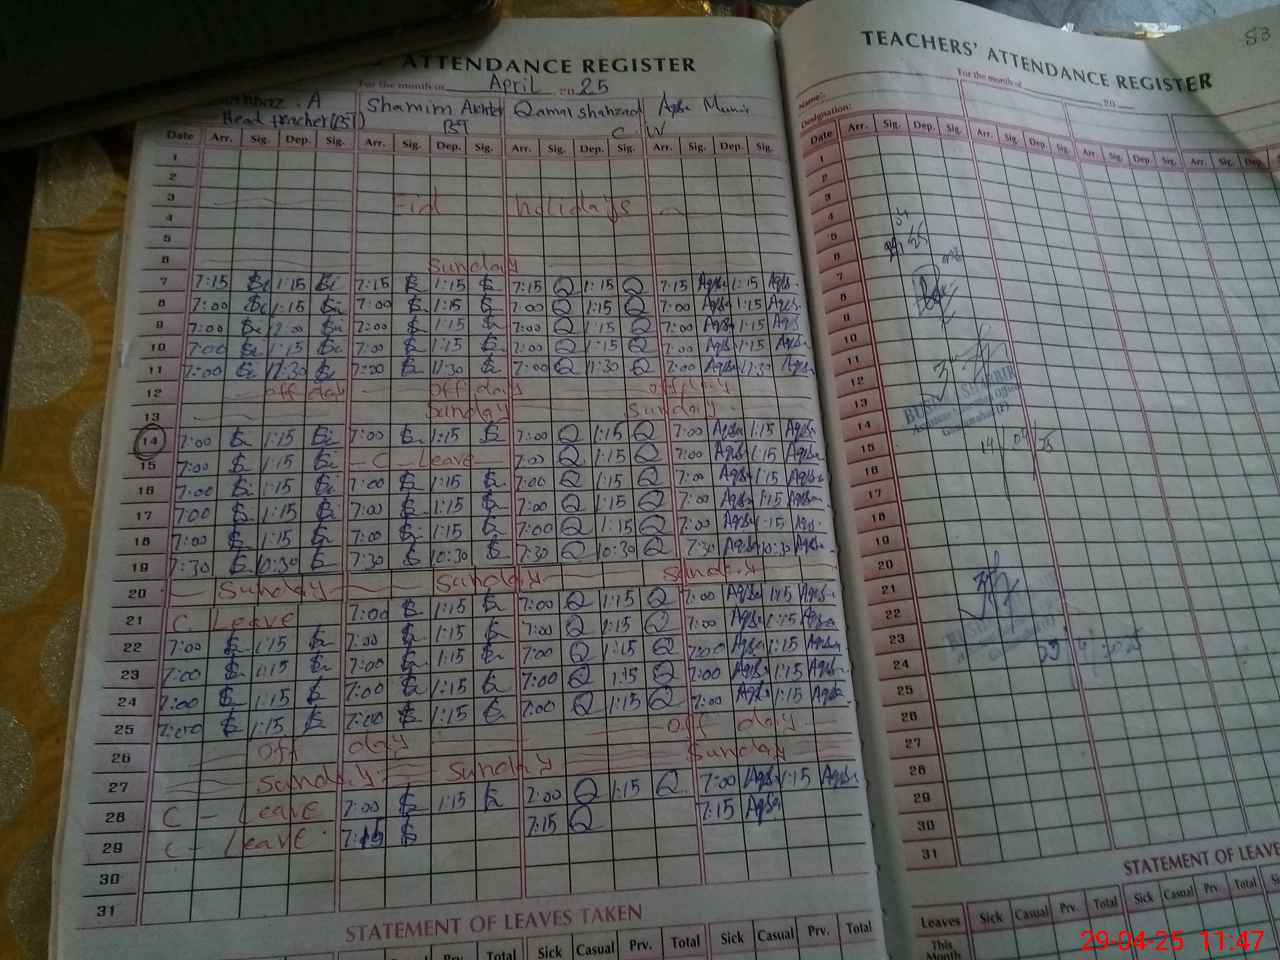 ATTENDANCE REGISTER
For the month of April 2025
A Shamim Akhter Qamar Shahzad Aqsa Munir
Head teacher (BT) BT C W
Date Arr. Sig. Dep. Sig. Arr. Sig. Dep. Sig. Arr. Sig. Dep. Sig. Arr. Sig. Dep. Sig.
1
2
3 Eid holidays
4
5
6 Sunday
7 7:15 1:15 7:15 1:15 7:15 Q 1:15 Q 7:15 Aqsa 1:15 Aqsa
8 7:00 1:15 7:00 1:15 7:00 Q 1:15 Q 7:00 Aqsa 1:15 Aqsa
9 7:00 7:00 1:15 7:00 Q 1:15 Q 7:00 Aqsa 1:15 Aqsa
10 7:00 1:15 7:00 1:15 7:00 Q 1:15 Q 7:00 Aqsa 1:15 Aqsa
11 7:00 11:30 7:00 11:30 7:00 Q 11:30 Q 7:00 Aqsa 11:30 Aqsa
12 off day off day off day
13 Sunday Sunday
14 7:00 1:15 7:00 1:15 7:00 Q 1:15 Q 7:00 Aqsa 1:15 Aqsa
15 7:00 1:15 - C - Leave 7:00 Q 1:15 Q 7:00 Aqsa 1:15 Aqsa
16 7:00 1:15 7:00 1:15 7:00 Q 1:15 Q 7:00 Aqsa 1:15 Aqsa
17 7:00 1:15 7:00 1:15 7:00 Q 1:15 Q 7:00 Aqsa 1:15 Aqsa
18 7:00 1:15 7:00 1:15 7:00 Q 1:15 Q 7:00 Aqsa 1:15 Aqsa
19 7:30 10:30 7:30 10:30 7:30 Q 10:30 Q 7:30 Aqsa 10:30 Aqsa
20 Sunday Sunday Sunday
21 C Leave 7:00 1:15 7:00 Q 1:15 Q 7:00 Aqsa 1:15 Aqsa
22 7:00 1:15 7:00 1:15 7:00 Q 1:15 Q 7:00 Aqsa 1:15 Aqsa
23 7:00 1:15 7:00 1:15 7:00 Q 1:15 Q 7:00 Aqsa 1:15 Aqsa
24 7:00 1:15 7:00 1:15 7:00 Q 1:15 Q 7:00 Aqsa 1:15 Aqsa
25 7:00 1:15 7:00 1:15 7:00 Q 1:15 Q 7:00 Aqsa 1:15 Aqsa
26 Off day Off day
27 Sunday Sunday Sunday
28 C - Leave 7:00 1:15 7:00 Q 1:15 Q 7:00 Aqsa 1:15 Aqsa
29 C - Leave 7:15 7:15 Q 7:15 Aqsa
30
31
STATEMENT OF LEAVES TAKEN
Total Sick Casual Prv. Total Sick Casual Prv. Total
53
TEACHERS' ATTENDANCE REGISTER
For the month of 20
Name:
Designation:
Date Arr. Sig. Dep. Sig. Arr. Sig. Dep. Sig. Arr. Sig. Dep. Sig. Arr. Sig. Dep.
1
2
3
4
5
6
7
8
9
10
11
12
13
14
15
16
17
18
19
20
21
22
23
24
25
26
27
28
29
30
31
14/04/25
STATEMENT OF LEAVE
Leaves Sick Casual Prv. Total Sick Casual Prv. Total
This Month
29-04-25 11:47